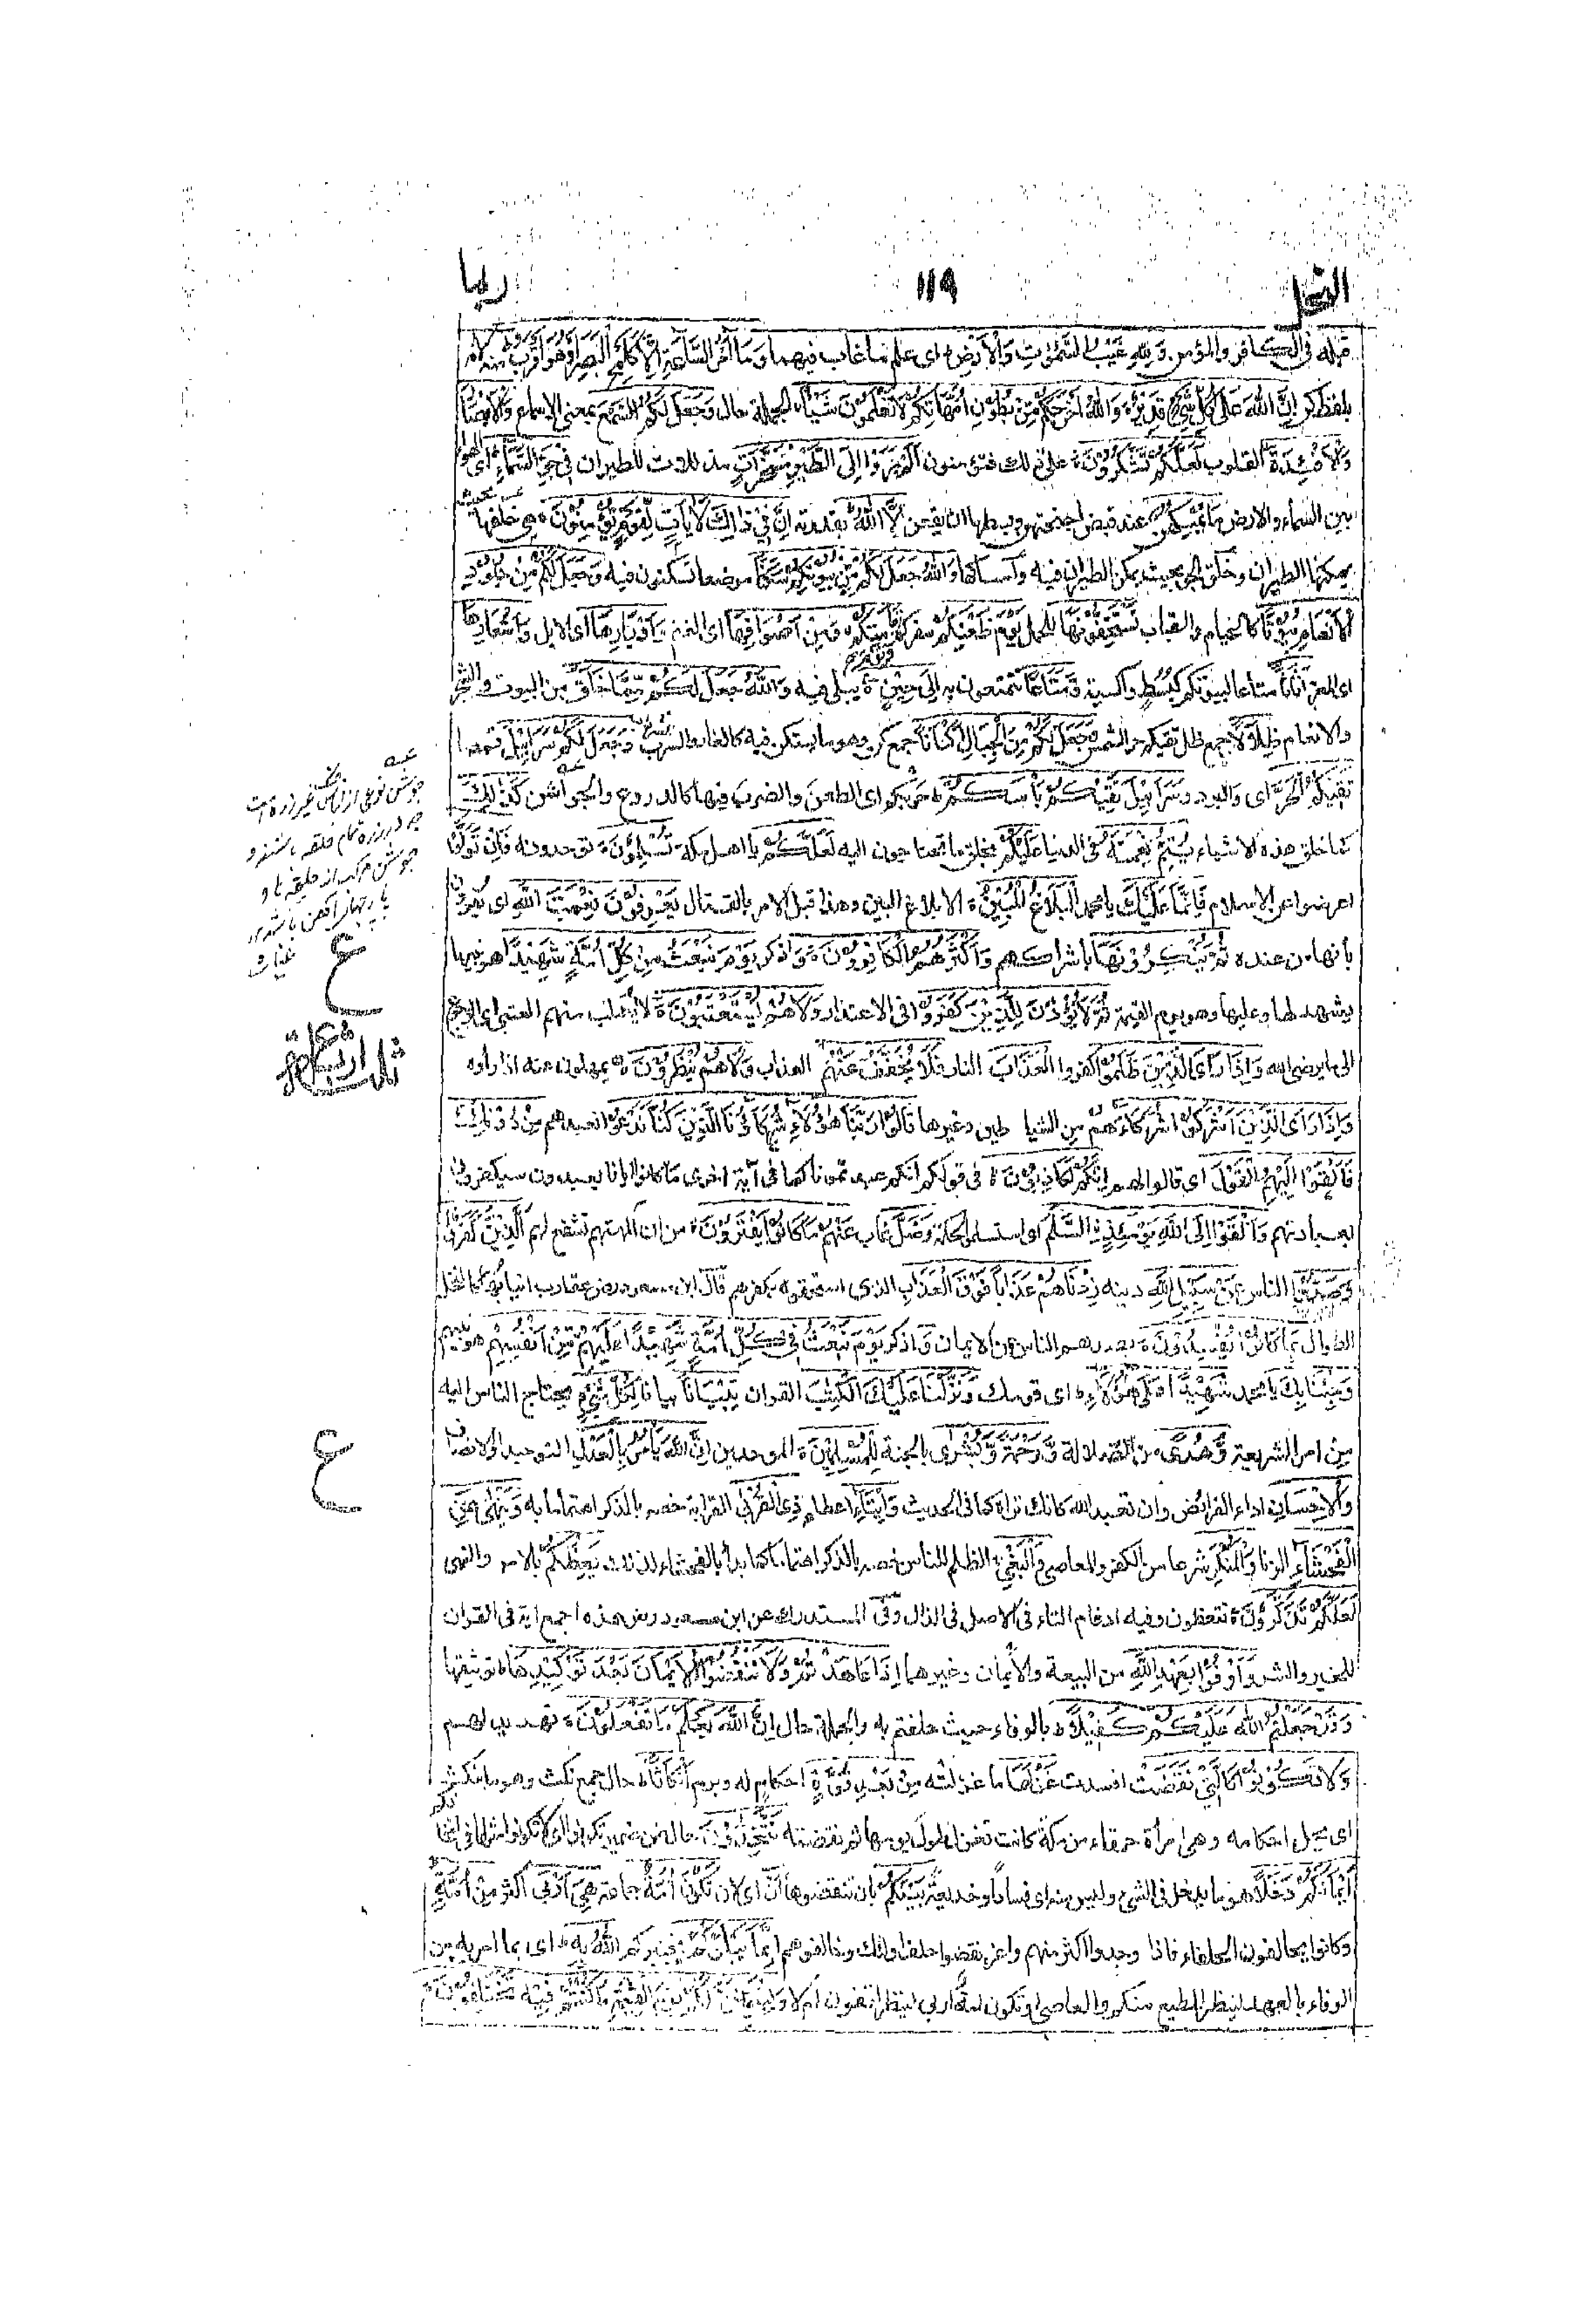 النحل
١١٩
ربما
قبله في الكافر والمؤمن وَلِلّٰهِ غَيْبُ السَّمٰوٰتِ وَالْاَرْضِ اى علم ما غاب فيهما وَمَا اَمْرُ السَّاعَةِ اِلَّا كَلَمْحِ الْبَصَرِ اَوْ هُوَ اَقْرَبُ منه لانه
بلفظ كن اِنَّ اللّٰهَ عَلٰى كُلِّ شَيْءٍ قَدِيْرٌ وَاللّٰهُ اَخْرَجَكُمْ مِّنْ بُطُوْنِ اُمَّهَاتِكُمْ لَا تَعْلَمُوْنَ شَيْئًا الجملة حال وَجَعَلَ لَكُمُ السَّمْعَ بمعنى الاسماع وَالْاَبْصَارَ
وَالْاَفْئِدَةَ القلوب لَعَلَّكُمْ تَشْكُرُوْنَ على ذلك فتؤمنون اَلَمْ يَرَوْا اِلَى الطَّيْرِ مُسَخَّرَاتٍ مذللات للطيران فِيْ جَوِّ السَّمَاءِ اى الهواء
بين السماء والارض مَا يُمْسِكُهُنَّ عند قبض اجنحتهن وبسطها ان يقعن اِلَّا اللّٰهُ بقدرته اِنَّ فِيْ ذٰلِكَ لَاٰيَاتٍ لِّقَوْمٍ يُّؤْمِنُوْنَ هى خلقها بحيث
يمكنها الطيران وخلق الجو بحيث يمكن الطيران فيه وامساكها وَاللّٰهُ جَعَلَ لَكُمْ مِّنْ بُيُوْتِكُمْ سَكَنًا موضعا تسكنون فيه وَجَعَلَ لَكُمْ مِّنْ جُلُوْدِ
الْاَنْعَامِ بُيُوْتًا كالخيام والقباب تَسْتَخِفُّوْنَهَا للحمل يَوْمَ ظَعْنِكُمْ سفركم وَيَوْمَ اِقَامَتِكُمْ وَمِنْ اَصْوَافِهَا اى الغنم وَاَوْبَارِهَا اى الابل وَاَشْعَارِهَا
اى المعز اَثَاثًا متاعا لبيوتكم كبسط واكسية وَّمَتَاعًا تتمتعون به اِلٰى حِيْنٍ يبلى فيه وَاللّٰهُ جَعَلَ لَكُمْ مِّمَّا خَلَقَ من البيوت والشجر
والانعام ظِلَالًا جمع ظل تقيكم حر الشمس وَّجَعَلَ لَكُمْ مِّنَ الْجِبَالِ اَكْنَانًا جمع كن وهو ما يستكن فيه كالغار والسرب وَّجَعَلَ لَكُمْ سَرَابِيْلَ قمصا
تَقِيْكُمُ الْحَرَّ اى والبرد وَسَرَابِيْلَ تَقِيْكُمْ بَأْسَكُمْ حربكم اى الطعن والضرب فيها كالدروع والجواشن كَذٰلِكَ
كما خلق هذه الاشياء يُتِمُّ نِعْمَتَهٗ فى الدنيا عَلَيْكُمْ بخلق ما تحتاجون اليه لَعَلَّكُمْ يا اهل مكة تُسْلِمُوْنَ توحدونه فَاِنْ تَوَلَّوْا
اعرضوا عن الاسلام فَاِنَّمَا عَلَيْكَ يا محمد الْبَلَاغُ الْمُبِيْنُ الابلاغ البين وهذا قبل الامر بالقتال يَعْرِفُوْنَ نِعْمَتَ اللّٰهِ اى يقرون
بأنها من عنده ثُمَّ يُنْكِرُوْنَهَا باشراكهم وَاَكْثَرُهُمُ الْكَافِرُوْنَ وَ اذكر يَوْمَ نَبْعَثُ مِنْ كُلِّ اُمَّةٍ شَهِيْدًا هو نبيها
يشهد لها وعليها وهو يوم القيمة ثُمَّ لَا يُؤْذَنُ لِلَّذِيْنَ كَفَرُوْا فى الاعتذار وَلَا هُمْ يُسْتَعْتَبُوْنَ لا يطلب منهم العتبى اى الرجوع
الى ما يرضى الله وَاِذَا رَاَى الَّذِيْنَ ظَلَمُوْا كفروا الْعَذَابَ النار فَلَا يُخَفَّفُ عَنْهُمْ العذاب وَلَا هُمْ يُنْظَرُوْنَ يمهلون عنه اذا رأوه
وَاِذَا رَاَى الَّذِيْنَ اَشْرَكُوْا شُرَكَاءَهُمْ من الشياطين وغيرها قَالُوْا رَبَّنَا هٰؤُلَاءِ شُرَكَاؤُنَا الَّذِيْنَ كُنَّا نَدْعُوْا نعبدهم مِنْ دُوْنِكَ
فَاَلْقَوْا اِلَيْهِمُ الْقَوْلَ اى قالوا لهم اِنَّكُمْ لَكَاذِبُوْنَ فى قولكم انكم عبدتمونا كما فى آية اخرى ما كانوا ايانا يعبدون سيكفرون
بعبادتهم وَاَلْقَوْا اِلَى اللّٰهِ يَوْمَئِذِنِ السَّلَمَ اى استسلموا لحكمه وَضَلَّ غاب عَنْهُمْ مَا كَانُوْا يَفْتَرُوْنَ من ان الهتهم تشفع لهم اَلَّذِيْنَ كَفَرُوْا
وَصَدُّوْا الناس عَنْ سَبِيْلِ اللّٰهِ دينه زِدْنَاهُمْ عَذَابًا فَوْقَ الْعَذَابِ الذى استحقوه بكفرهم قال ابن مسعود رض عقارب انيابها كالنخل
الطوال بِمَا كَانُوْا يُفْسِدُوْنَ بصدهم الناس عن الايمان وَ اذكر يَوْمَ نَبْعَثُ فِيْ كُلِّ اُمَّةٍ شَهِيْدًا عَلَيْهِمْ مِّنْ اَنْفُسِهِمْ هو نبيهم
وَجِئْنَا بِكَ يا محمد شَهِيْدًا عَلٰى هٰؤُلَاءِ اى قومك وَنَزَّلْنَا عَلَيْكَ الْكِتٰبَ القران تِبْيَانًا بيانا لِّكُلِّ شَيْءٍ يحتاج الناس اليه
من امر الشريعة وَّهُدًى من الضلالة وَّرَحْمَةً وَّبُشْرٰى بالجنة لِلْمُسْلِمِيْنَ الموحدين اِنَّ اللّٰهَ يَأْمُرُ بِالْعَدْلِ التوحيد او الانصاف
وَالْاِحْسَانِ اداء الفرائض وان تعبد الله كانك تراه كما فى الحديث وَاِيْتَاءِ اعطاء ذِى الْقُرْبٰى القرابة خصه بالذكر اهتماما به وَيَنْهٰى عَنِ
الْفَحْشَاءِ الزنا وَالْمُنْكَرِ شرعا من الكفر والمعاصى وَالْبَغْيِ الظلم للناس خصه بالذكر اهتماما كما بدأ بالفحشاء لذلك يَعِظُكُمْ بالامر والنهى
لَعَلَّكُمْ تَذَكَّرُوْنَ تتعظون وفيه ادغام التاء فى الاصل فى الذال وفى المستدرك عن ابن مسعود رض هذه اجمع اية فى القران
للخير والشر وَاَوْفُوْا بِعَهْدِ اللّٰهِ من البيعة والأيمان وغيرهما اِذَا عَاهَدْتُمْ وَلَا تَنْقُضُوا الْاَيْمَانَ بَعْدَ تَوْكِيْدِهَا توثيقها
وَقَدْ جَعَلْتُمُ اللّٰهَ عَلَيْكُمْ كَفِيْلًا بالوفاء حيث حلفتم به والجملة حال اِنَّ اللّٰهَ يَعْلَمُ مَا تَفْعَلُوْنَ تهديد لهم
وَلَا تَكُوْنُوْا كَالَّتِيْ نَقَضَتْ افسدت غَزْلَهَا ما غزلته مِنْ بَعْدِ قُوَّةٍ احكام له وبرم اَنْكَاثًا حال جمع نكث وهو ما ينكث
اى يحل احكامه وهى امرأة حمقاء من مكة كانت تغزل طول يومها ثم تنقضه تَتَّخِذُوْنَ حال من ضمير تكونوا اى لا تكونوا مثلها فى اتخاذكم
اَيْمَانَكُمْ دَخَلًا هو ما يدخل فى الشىء وليس منه اى فسادا وخديعة بَيْنَكُمْ بان تنقضوها اَنْ اى لان تَكُوْنَ اُمَّةٌ جماعة هِيَ اَرْبٰى اكثر مِنْ اُمَّةٍ
وكانوا يحالفون الحلفاء فاذا وجدوا اكثر منهم واعز نقضوا حلف اولئك وحالفوهم اِنَّمَا يَبْلُوْكُمُ يختبركم اللّٰهُ بِهٖ اى بما امر به من
الوفاء بالعهد لينظر المطيع منكم والعاصى او تكون امة اربى لينظر اتفون ام لا وَلَيُبَيِّنَنَّ لَكُمْ يَوْمَ الْقِيٰمَةِ مَا كُنْتُمْ فِيْهِ تَخْتَلِفُوْنَ
عـه
جوشن نوعى از لباس جنگ غير زره است
چه در زره تمام حلقه باشند و
جوشن مركب از حلقه ها و
پارچهاى آهن باشد
غياث
ع
ع